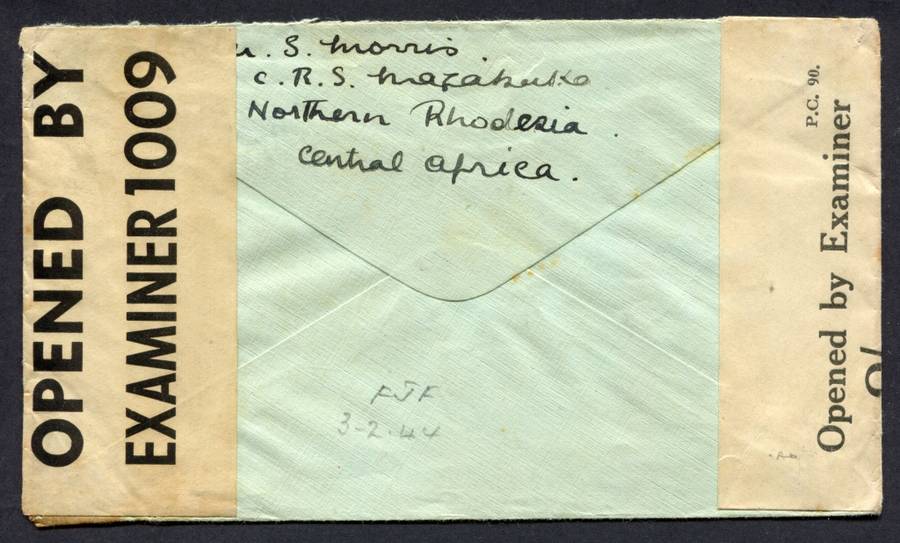 OPENED BY
EXAMINER 1009
S. Morris
C.R.S. Mazabuka
Northern Rhodesia.
Central Africa.
FJF
3-2.44
P.C. 90.
Opened by Examiner